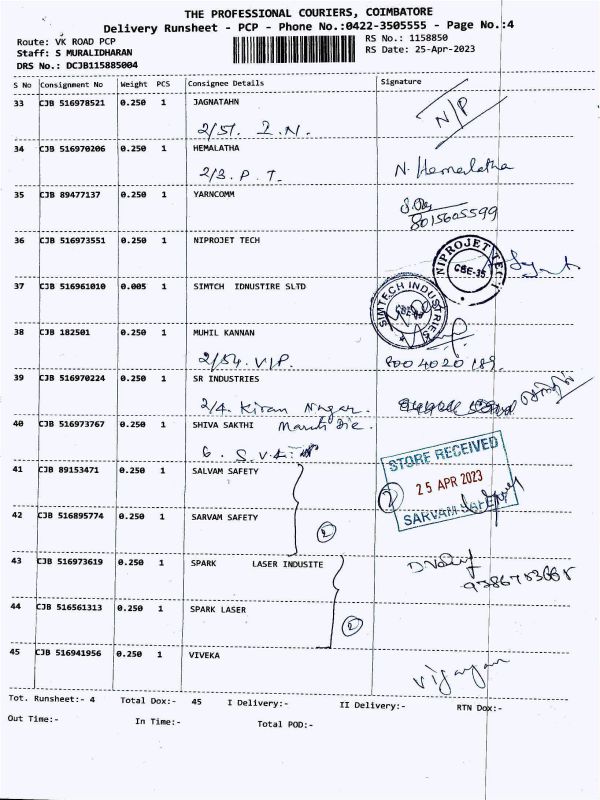 THE PROFESSIONAL COURIERS, COIMBATORE
Delivery Runsheet - PCP - Phone No.:0422-3505555 - Page No.:4
Route: VK ROAD PCP RS No.: 1158850
Staff: S MURALIDHARAN RS Date: 25-Apr-2023
DRS No.: DCJB115885004
S No Consignment No Weight PCS Consignee Details Signature
33 CJB 516978521 0.250 1 JAGNATAHN N/P
2/51. I.N.
34 CJB 516970206 0.250 1 HEMALATHA
2/3. P.T. N. Hemalatha
35 CJB 89477137 0.250 1 YARNCOMM
8015605599
36 CJB 516973551 0.250 1 NIPROJET TECH
NIPROJET TEC
CBE-35
37 CJB 516961010 0.005 1 SIMTCH IDNUSTIRE SLTD
SIMTECH INDUSTRIES
38 CJB 182501 0.250 1 MUHIL KANNAN
2/54. V.I.P.
39 CJB 516970224 0.250 1 SR INDUSTRIES
2/4. Kiran Nagar.
40 CJB 516973767 0.250 1 SHIVA SAKTHI
6. S.V.
41 CJB 89153471 0.250 1 SALVAM SAFETY
STORE RECEIVED
25 APR 2023
SARVAM SAFETY
2
42 CJB 516895774 0.250 1 SARVAM SAFETY
2
43 CJB 516973619 0.250 1 SPARK LASER INDUSITE
44 CJB 516561313 0.250 1 SPARK LASER
2
45 CJB 516941956 0.250 1 VIVEKA
Vijayan
Tot. Runsheet:- 4 Total Dox:- 45 I Delivery:- II Delivery:- RTN Dox:-
Out Time:- In Time:- Total POD:-